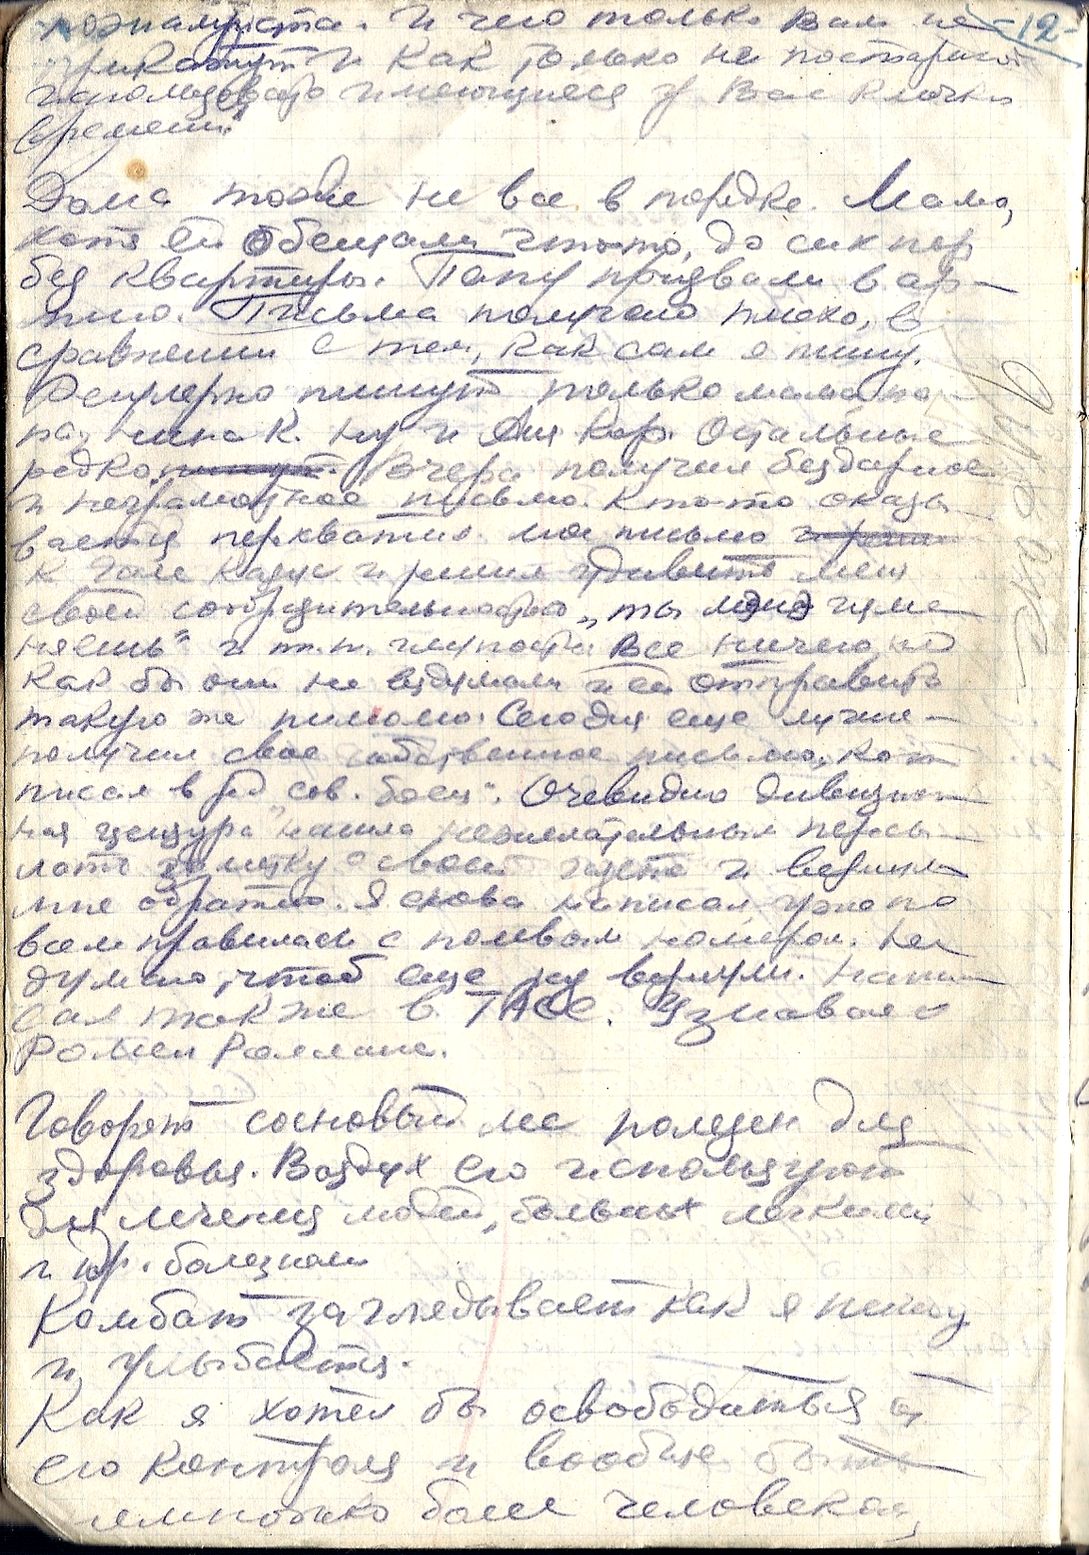 пожалуйста. И чего только Вам не -12-
прикажут и как только не постараются
использовать имеющиеся у Вас клочки
времени".
Дома тоже не все в порядке. Мама,
хотя ей обещали что-то, до сих пор
без квартиры. Папу призвали в ар-
мию. Письма получаю плохо, в
сравнении с тем, как сам я пишу.
Регулярно пишут только мама, па-
па, Нина К. ну и Аня Кар. Остальные
редко. Вчера получил бездарное
и неграмотное письмо. Кто-то оказы-
вается перехватил мое письмо
к Гале Казус и решил удивить меня
своей сообразительностью „ты изме-
няешь" и т.п. глупости. Все ничего, но
как бы они не вздумали и ей отправить
такую же письмо. Сегодня еще лучше -
получил свое собственное письмо, кот.
писал в ред „сов. боец". Очевидно дивизион-
ная цензура нашла нежелательным пересы-
лать заметку о своей газете и вернула
мне обратно. Я снова написал, уже по
всем правилам с полевым номером. Не
думаю, чтоб еще раз вернули. Напи-
сал также в ТАСС. Узнавал о
Ромен Роллане.
Говорят сосновый лес полезен для
здоровья. Воздух его используют
для лечения людей, больных легкими
и др. болезнями
Комбат заглядывает как я пишу
и улыбается.
Как я хотел бы освободиться от
его контроля и вообще быть
немножко более человеком,